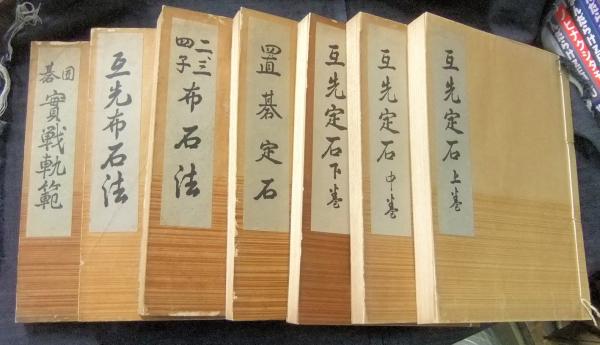 互先定石 上巻
互先定石 中巻
互先定石 下巻
置碁定石
二、三
四子
布石法
互先布石法
囲
碁
實戦軌範